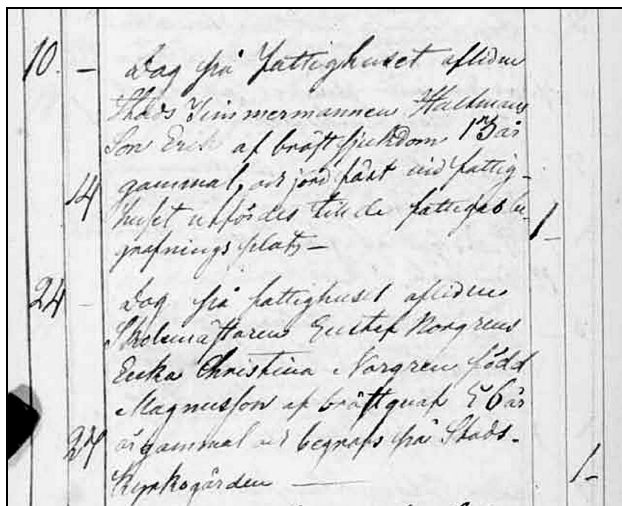 10. — Dog på fattighuset aflidne
Stads Timmermannen Hallmans
Son Erik af bröstsjukdom 13 år
gammal, och jordfäst vid fattig-
14 huset utfördes till de fattigas be-
grafnings plats — 1 —
24 — Dog på fattighuset aflidne
Skolmästaren Gustef Norgrens
Enka Christina Norgren född
Magnusson af bröstqvaf 56 år
27 gammal och begrafs på Stads-
Kyrkogården — 1 —